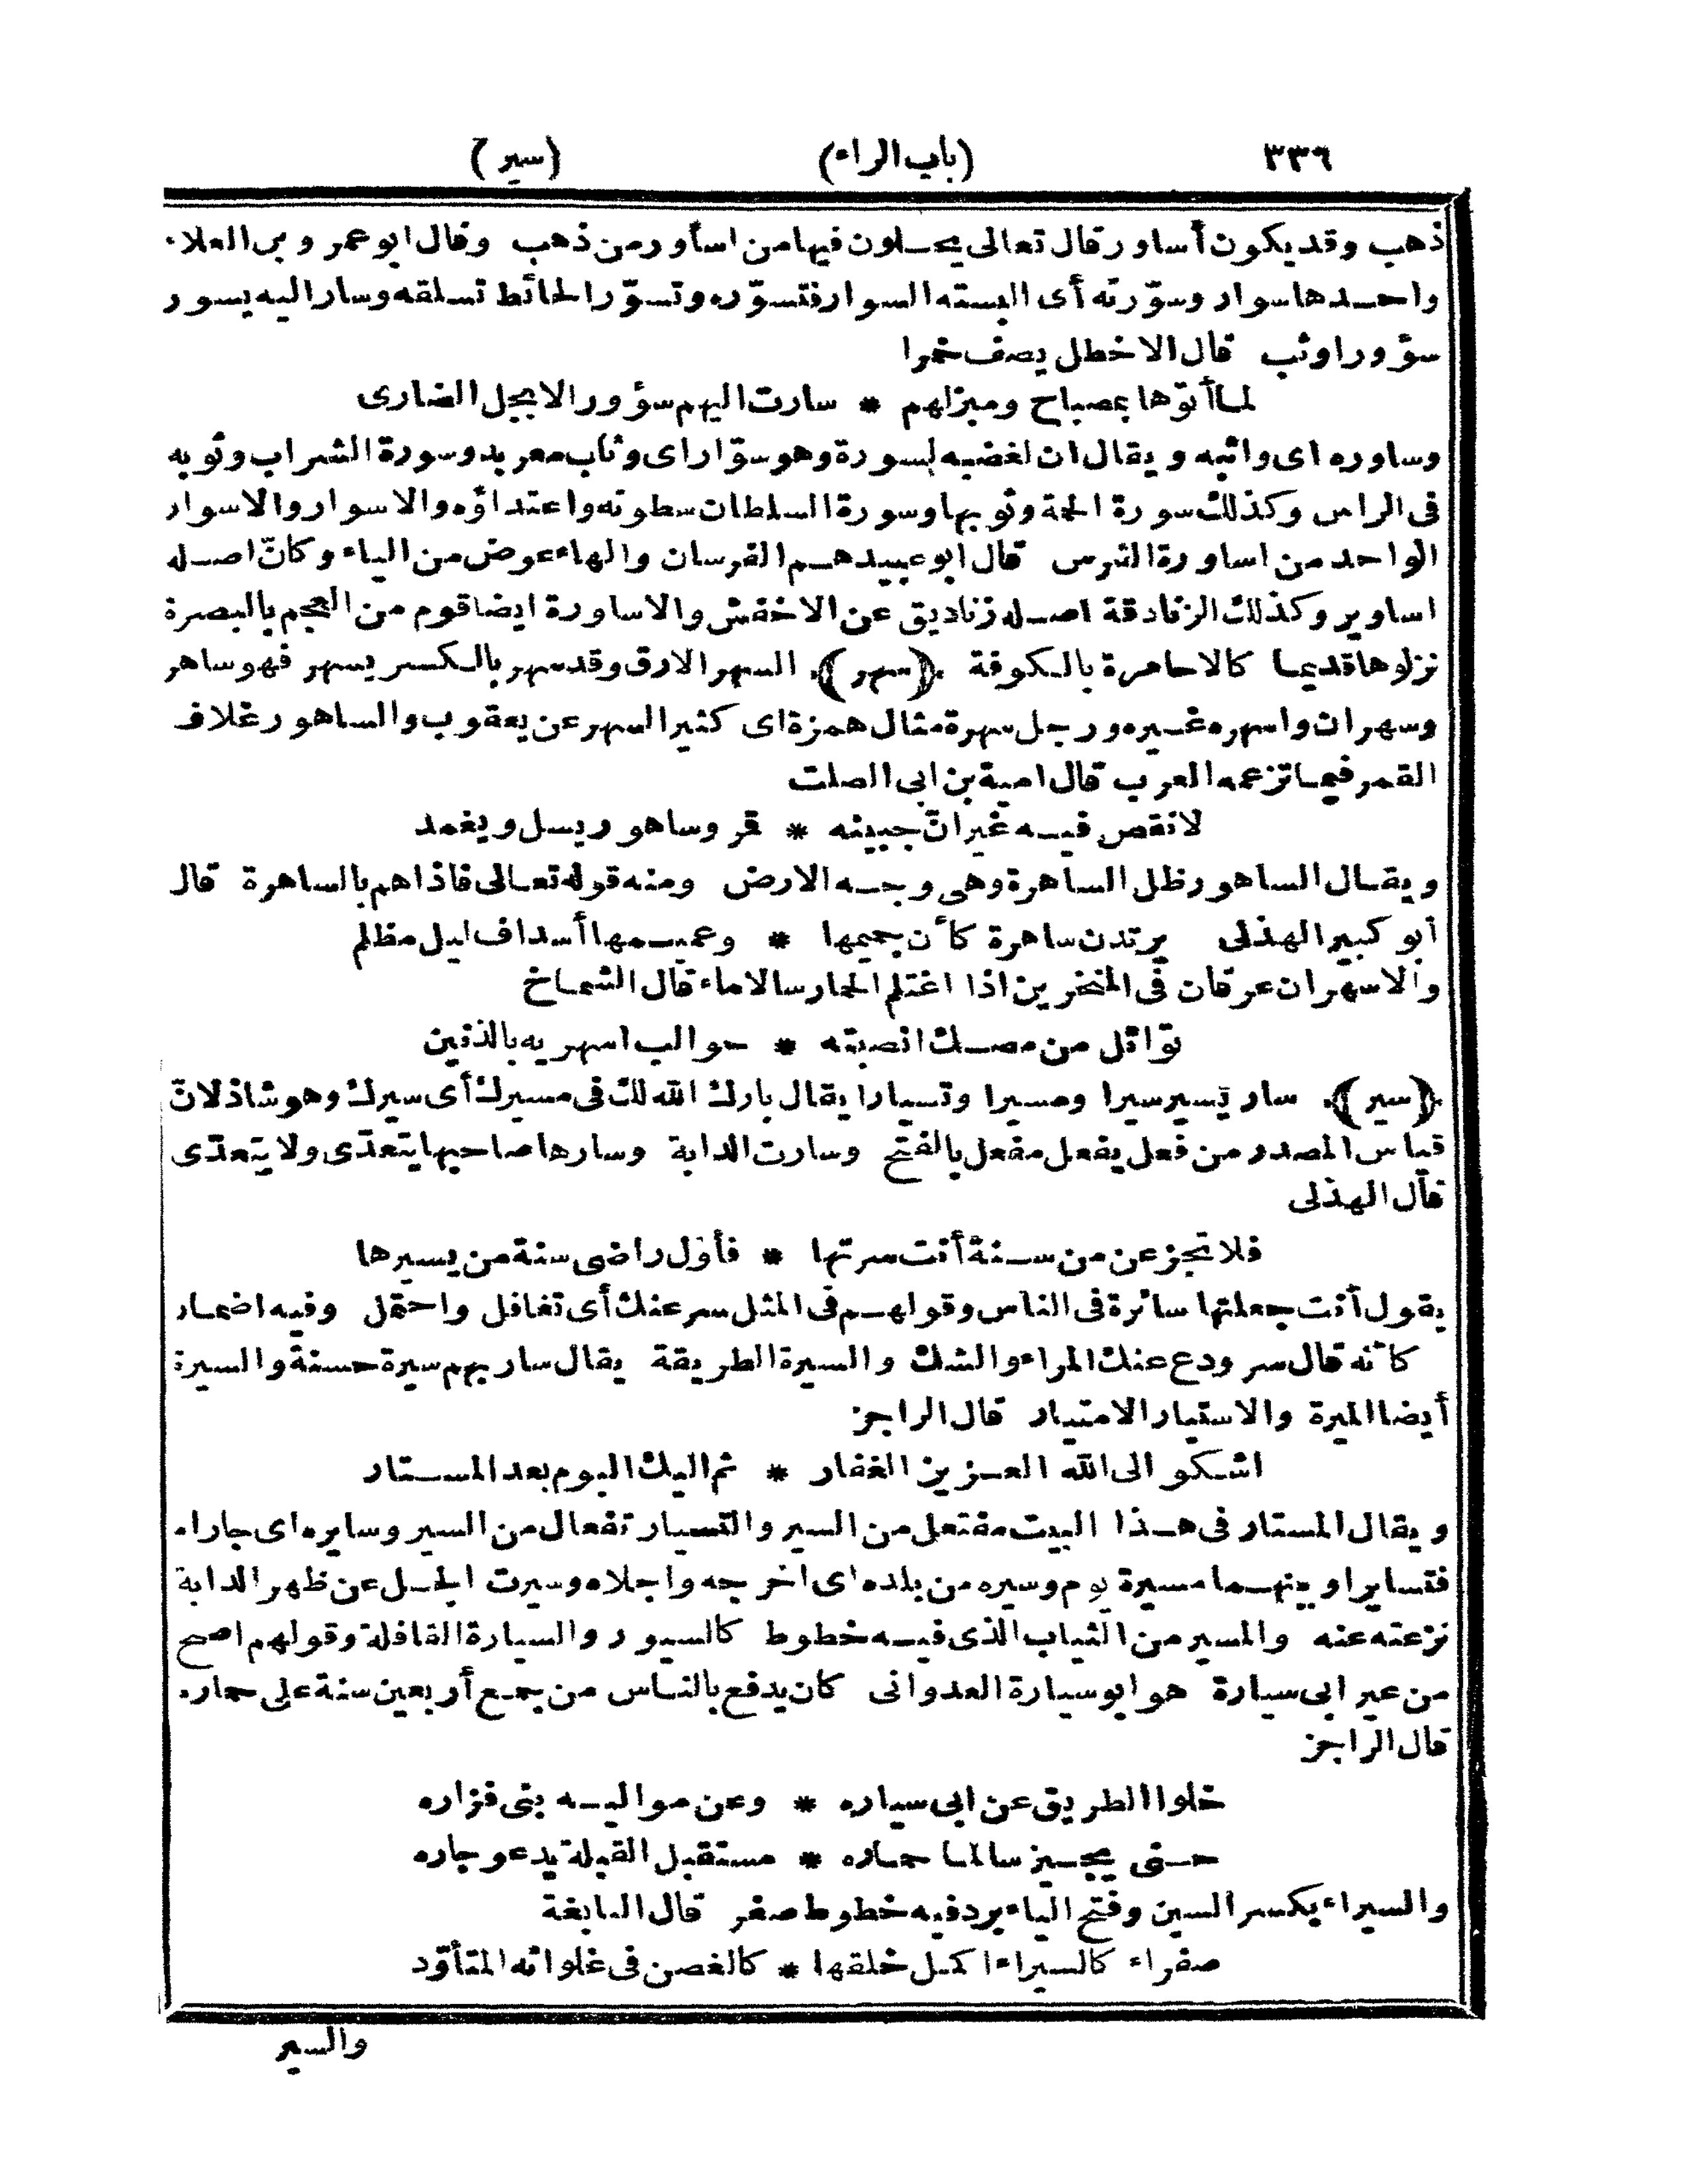 ٣٣٦ (باب الراء) (سير)
ذهب وقد يكون أساور قال تعالى يحلون فيها من اسأور من ذهب وقال ابو عمرو بن العلاء
واحدها سوار وسوّرته أى البسته السوار فتسوّره وتسوّر الحائط تسلقه وسار اليه يسور
سؤورا وثب قال الاخطل يصف خمرا
لما أتوها بمصباح ومبزلهم * سارت اليهم سؤور الابجل الضارى
وساوره اى واثبه ويقال ان لغضبه لسورة وهو سوّار اى وثاب معربد وسورة الشراب وثوبه
فى الراس وكذلك سورة الحمة وثوبها وسورة السلطان سطوته واعتداؤه والاسوار والاسوار
الواحد من اساورة الفرس قال ابو عبيد هم الفرسان والهاء عوض من الياء وكانّ اصله
اساوير وكذلك الزنادقة اصله زناديق عن الاخفش والاساورة ايضا قوم من العجم بالبصرة
نزلوها قديما كالاحامرة بالكوفة ﴿سهر﴾ السهر الارق وقد سهر بالكسر يسهر فهو ساهر
وسهران واسهره غيره ورجل سهرة مثال همزة اى كثير السهر عن يعقوب والساهور غلاف
القمر فيما تزعمه العرب قال امية بن ابى الصلت
لا نقص فيه غير انّ جبينه * قمر وساهور يسل ويغمد
ويقال الساهور ظل الساهرة وهى وجه الارض ومنه قوله تعالى فاذا هم بالساهرة قال
أبو كبير الهذلى يرتدن ساهرة كأن جميمها * وعميمها أسداف ليل مظلم
والاسهران عرقان فى المنخرين اذا اغتلم الحمار سالا ماء قال الشماخ
توائل من مصك انصبته * حوالب اسهريه بالذنين
﴿سير﴾ سار يسير سيرا ومسيرا وتسيارا يقال بارك الله لك فى مسيرك أى سيرك وهو شاذ لانّ
قياس المصدر من فعل يفعل مفعل بالفتح وسارت الدابة وسارها صاحبها يتعدّى ولا يتعدّى
قال الهذلى
فلا تجزعن من سنة أنت سرتها * فأوّل راضى سنة من يسيرها
يقول أنت جعلتها سائرة فى الناس وقولهم فى المثل سر عنك أى تغافل واحتمل وفيه اضمار
كأنه قال سر ودع عنك المراء والشك والسيرة الطريقة يقال سار بهم سيرة حسنة والسيرة
أيضا الميرة والاستيار الامتيار قال الراجز
اشكو الى الله العزيز الغفار * ثم اليك اليوم بعد المستار
ويقال المستار فى هذا البيت مفتعل من السير والتسيار تفعال من السير وسايره اى جاراه
فتسايرا وبينهما مسيرة يوم وسيره من بلده اى اخرجه واجلاه وسيرت الجل عن ظهر الدابة
نزعته عنه والمسير من الثياب الذى فيه خطوط كالسيور والسيارة القافلة وقولهم اصح
من عير ابى سيارة هو ابو سيارة العدوانى كان يدفع بالناس من جمع أربعين سنة على حماره
قال الراجز
خلوا الطريق عن ابى سياره * وعن مواليه بنى فزاره
حتى يجيز سالما حماره * مستقبل القبلة يدعو جاره
والسيراء بكسر السين وفتح الياء برد فيه خطوط صفر قال النابغة
صفراء كالسيراء اكمل خلقها * كالغصن فى غلوائه المتأوّد
والسير